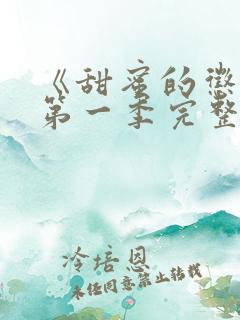 《甜蜜的惩
第一季完整
冷培恩
未经同意禁止转载